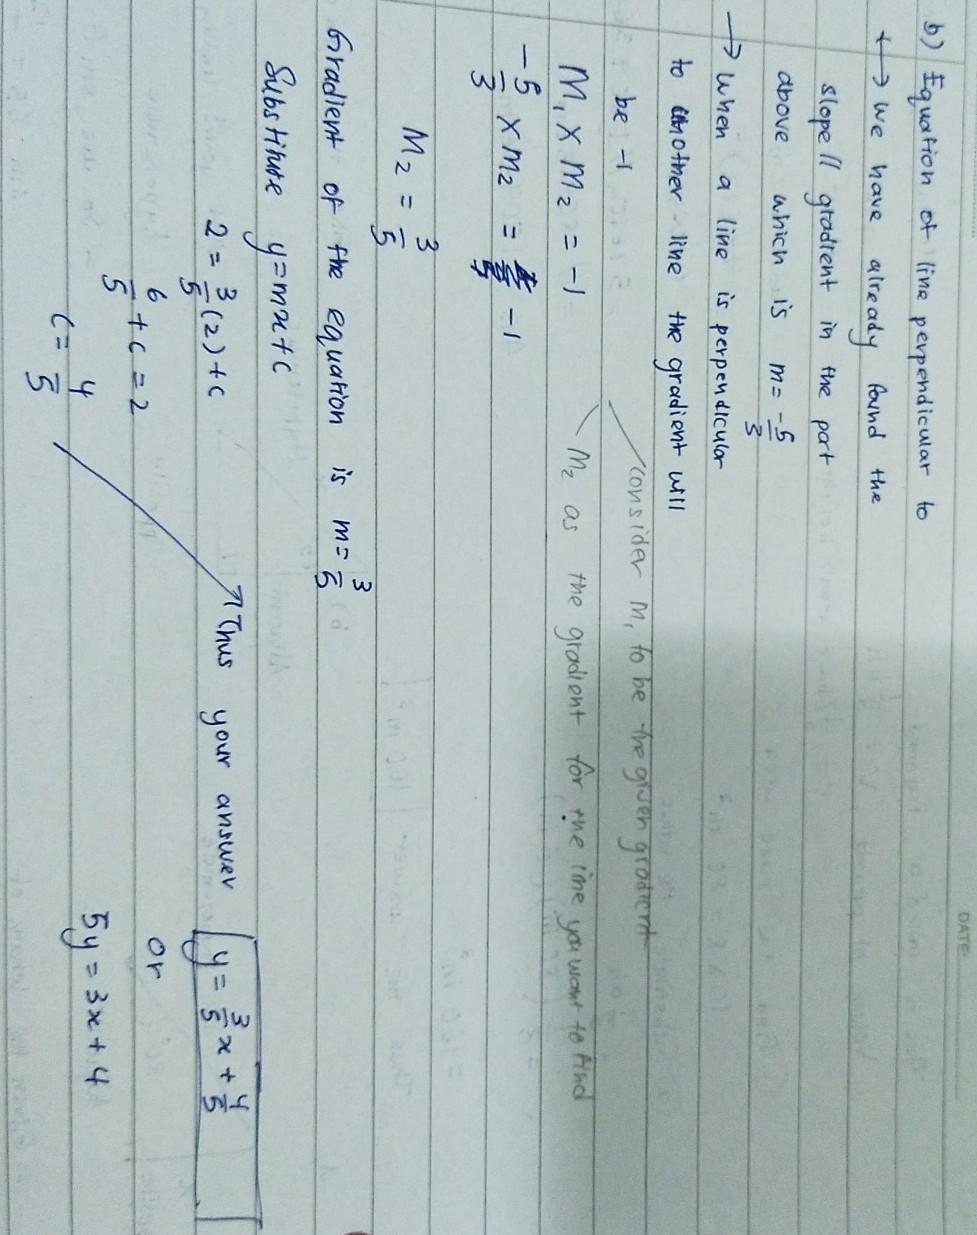 DATE
b) Equation of line perpendicular to
→ we have already found the
slope // gradient in the part
above which is m = -5/3
→ when a line is perpendicular
to another line the gradient will
be -1
consider M₁ to be the given gradient
M₁ × M₂ = -1
M₂ as the gradient for the line you want to find
-5/3 × M₂ = -1
M₂ = 3/5
Gradient of the equation is m = 3/5
Substitute y = mx + c
2 = 3/5 (2) + c
Thus your answer y = 3/5 x + 4/5
6/5 + c = 2
or
c = 4/5
5y = 3x + 4